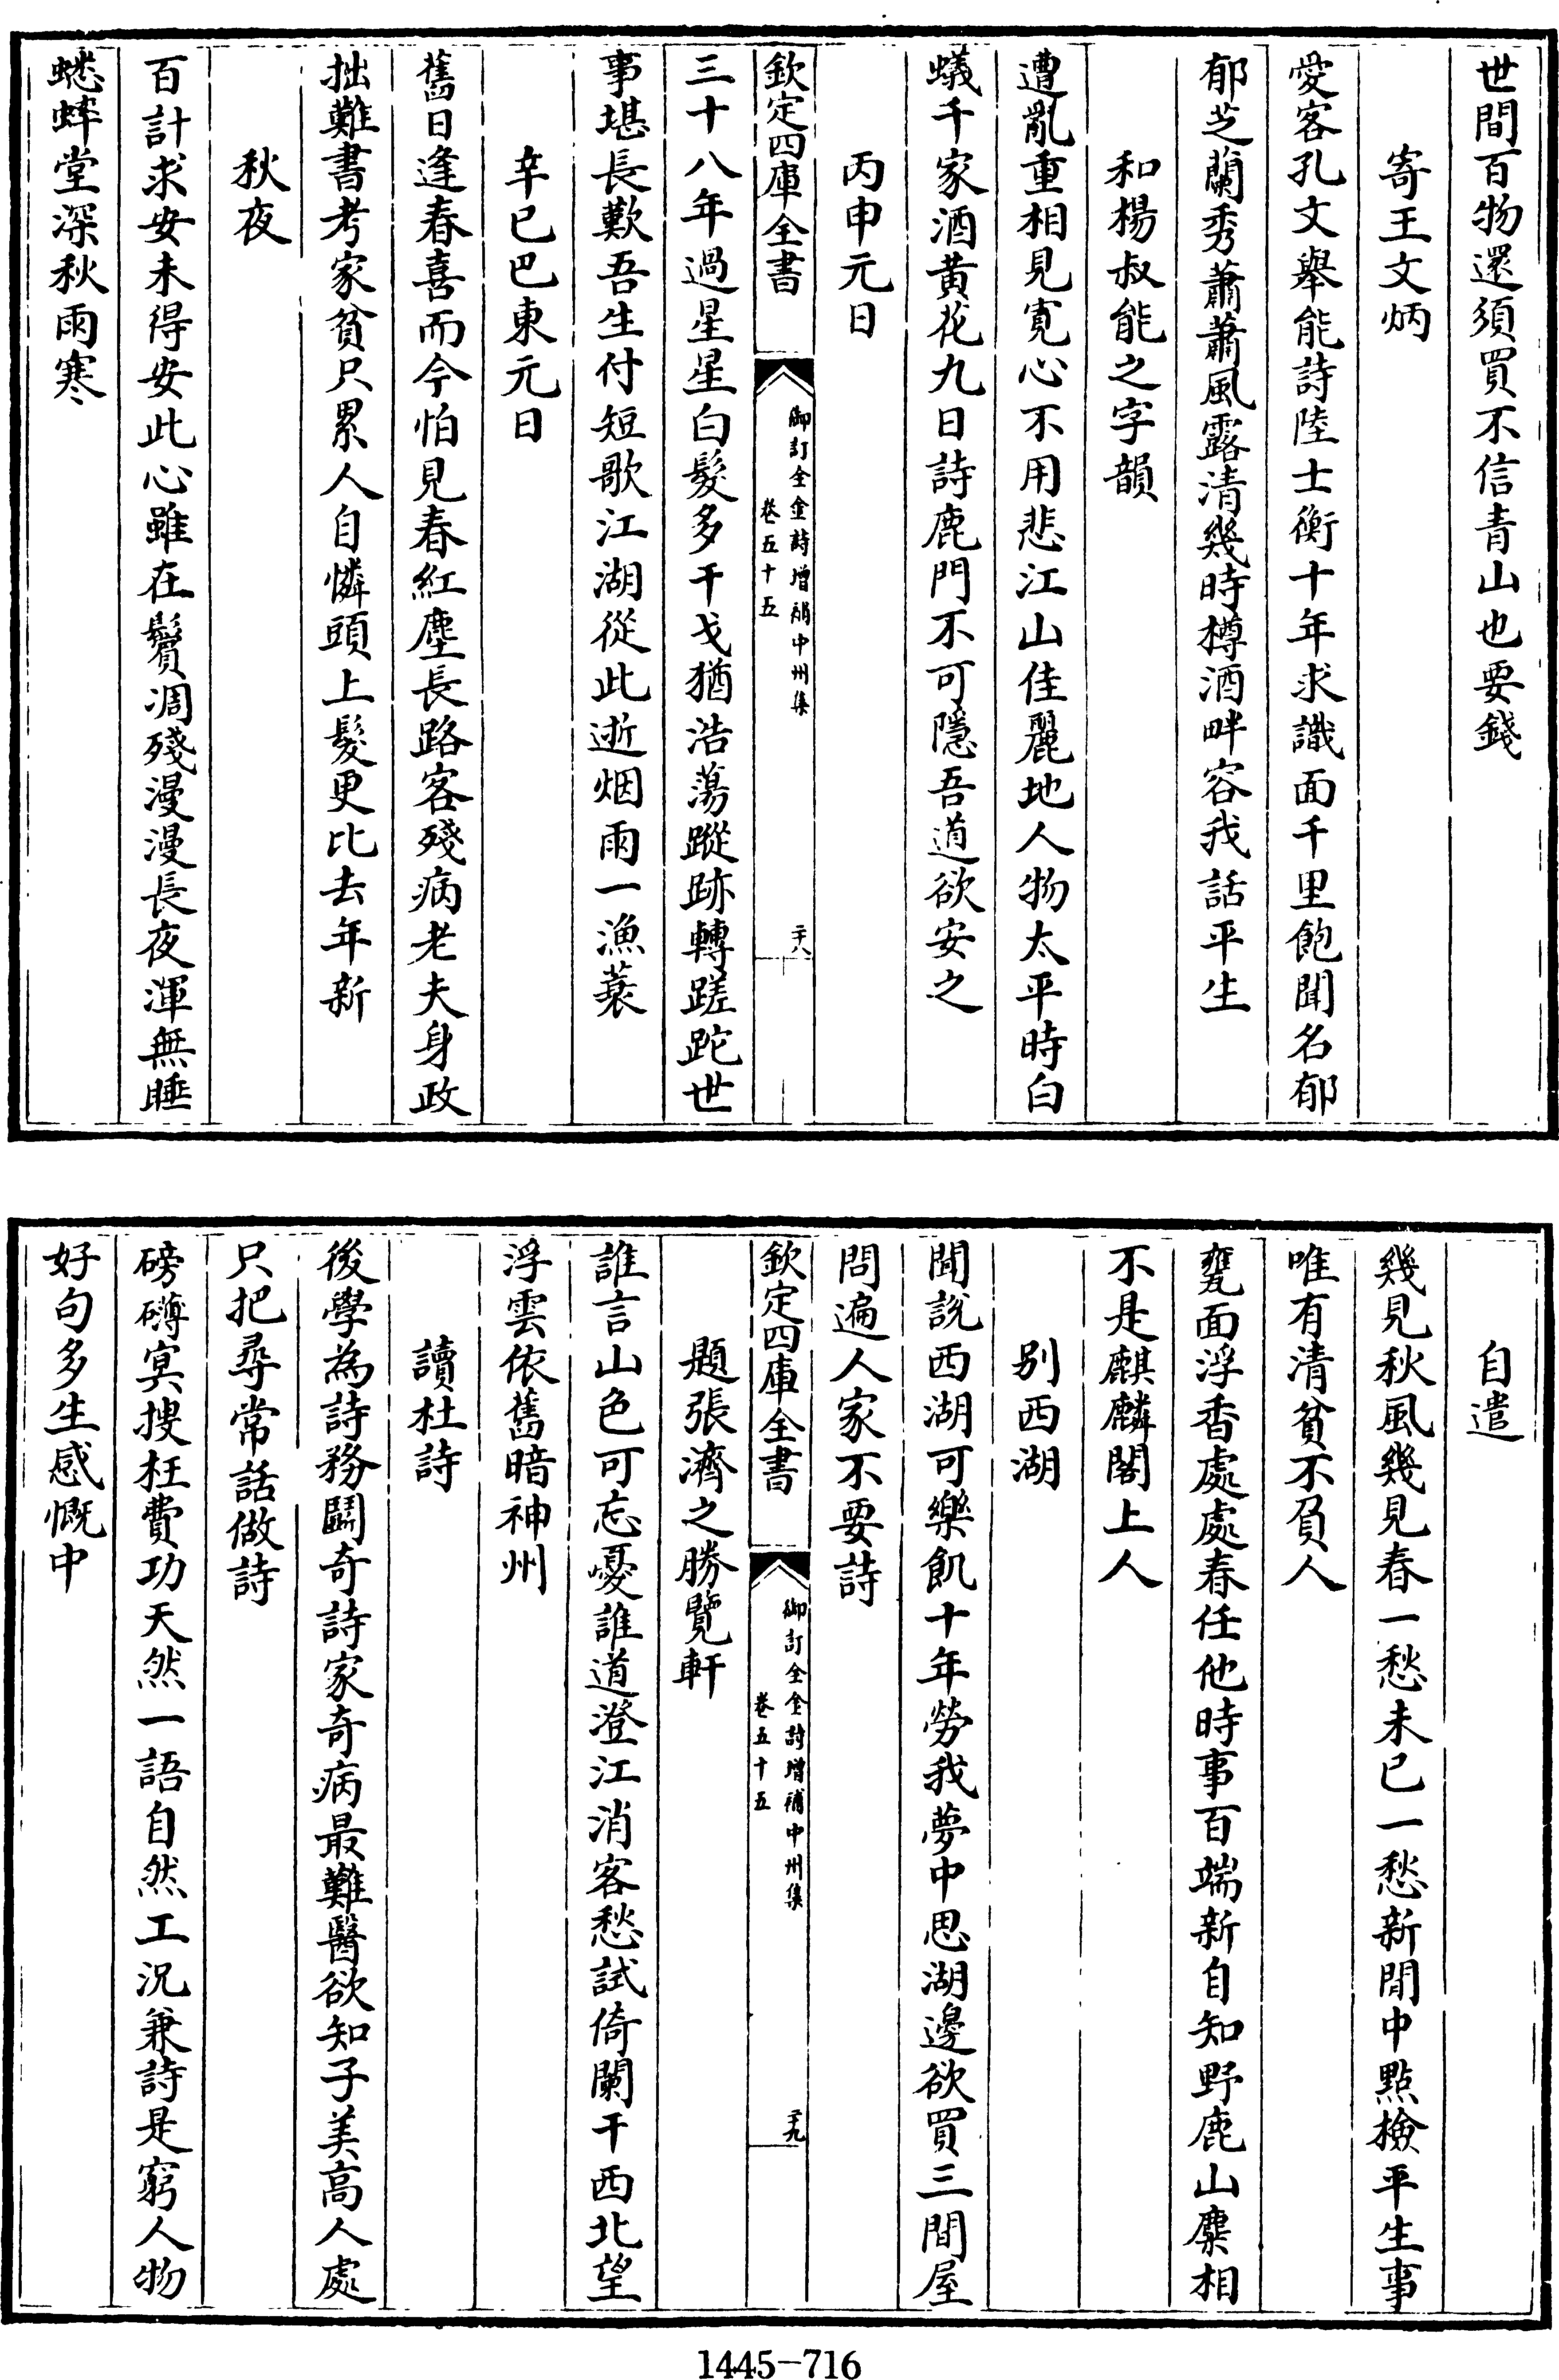 世間百物還須買不信青山也要錢
寄王文炳
愛客孔文舉能詩陸士衡十年求識面千里飽聞名郁
郁芝蘭秀蕭蕭風露清幾時樽酒畔容我話平生
和楊叔能之字韻
遭亂重相見寬心不用悲江山佳麗地人物太平時白
蟻千家酒黃花九日詩鹿門不可隱吾道欲安之
丙申元日
欽定四庫全書
御訂全金詩增補中州集
卷五十五
二十八
三十八年過星星白髮多干戈猶浩蕩蹤跡轉蹉跎世
事堪長歎吾生付短歌江湖從此逝烟雨一漁蓑
辛巳巴東元日
舊日逢春喜而今怕見春紅塵長路客殘病老夫身政
拙難書考家貧只累人自憐頭上髮更比去年新
秋夜
百計求安未得安此心雖在鬢凋殘漫漫長夜渾無睡
蟋蟀堂深秋雨寒
自遣
幾見秋風幾見春一愁未已一愁新閒中點檢平生事
唯有清貧不負人
甕面浮香處處春任他時事百端新自知野鹿山麋相
不是麒麟閣上人
別西湖
聞說西湖可樂飢十年勞我夢中思湖邊欲買三間屋
問遍人家不要詩
欽定四庫全書
御訂全金詩增補中州集
卷五十五
二十九
題張濟之勝覽軒
誰言山色可忘憂誰道澄江消客愁試倚闌干西北望
浮雲依舊暗神州
讀杜詩
後學為詩務鬭奇詩家奇病最難醫欲知子美高人處
只把尋常話做詩
磅礴冥搜枉費功天然一語自然工況兼詩是窮人物
好句多生感慨中
1445-716